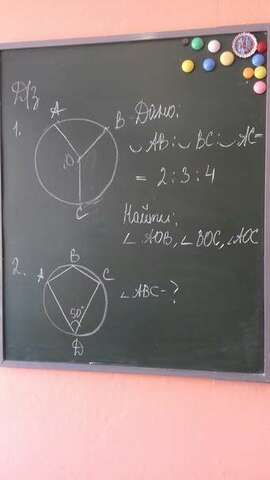 Д/з
1.
A
B
O
C
Дано:
◡AB:◡BC:◡AC=
= 2:3:4
Найти:
∠AOB, ∠BOC, ∠AOC
2.
A
B
C
50°
D
∠ABC-?